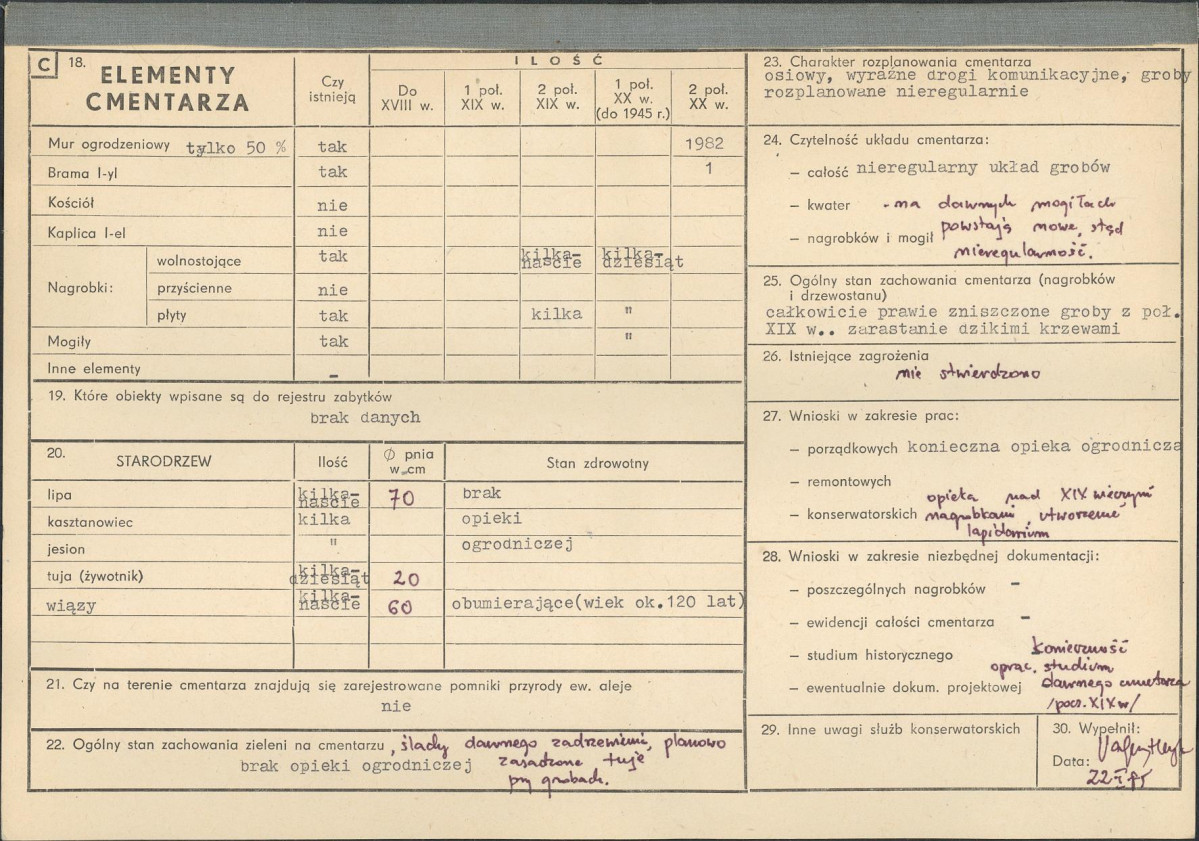 C 18. ELEMENTY CMENTARZA
Czy istnieją
ILOŚĆ
Do XVIII w.
1 poł. XIX w.
2 poł. XIX w.
1 poł. XX w. (do 1945 r.)
2 poł. XX w.
Mur ogrodzeniowy tylko 50 % tak 1982
Brama I-yl tak 1
Kościół nie
Kaplica I-el nie
Nagrobki:
wolnostojące tak kilka-naście kilka-dziesiąt
przyścienne nie
płyty tak kilka "
Mogiły tak "
Inne elementy –
19. Które obiekty wpisane są do rejestru zabytków
brak danych
20. STARODRZEW Ilość Ø pnia w cm Stan zdrowotny
lipa kilka-naście 70 brak
kasztanowiec kilka opieki
jesion " ogrodniczej
tuja (żywotnik) kilka-dziesiąt 20
wiązy kilka-naście 60 obumierające(wiek ok.120 lat)
21. Czy na terenie cmentarza znajdują się zarejestrowane pomniki przyrody ew. aleje
nie
22. Ogólny stan zachowania zieleni na cmentarzu, ślady dawnego zadrzewienia, planowo
brak opieki ogrodniczej zasadzone tuje
przy grobach.
23. Charakter rozplanowania cmentarza
osiowy, wyraźne drogi komunikacyjne, groby
rozplanowane nieregularnie
24. Czytelność układu cmentarza:
– całość nieregularny układ grobów
– kwater - na dawnych mogiłach
– nagrobków i mogił powstają nowe, stąd
nieregularność.
25. Ogólny stan zachowania cmentarza (nagrobków
i drzewostanu)
całkowicie prawie zniszczone groby z poł.
XIX w.. zarastanie dzikimi krzewami
26. Istniejące zagrożenia
nie stwierdzono
27. Wnioski w zakresie prac:
– porządkowych konieczna opieka ogrodnicza
– remontowych
opieka nad XIX wiecznymi
– konserwatorskich nagrobkami, utworzenie
lapidarium
28. Wnioski w zakresie niezbędnej dokumentacji:
– poszczególnych nagrobków –
– ewidencji całości cmentarza –
– studium historycznego konieczność
oprac. studium
– ewentualnie dokum. projektowej dawnego cmentarza
/pocz. XIX w/
29. Inne uwagi służb konserwatorskich
30. Wypełnił:
Data: